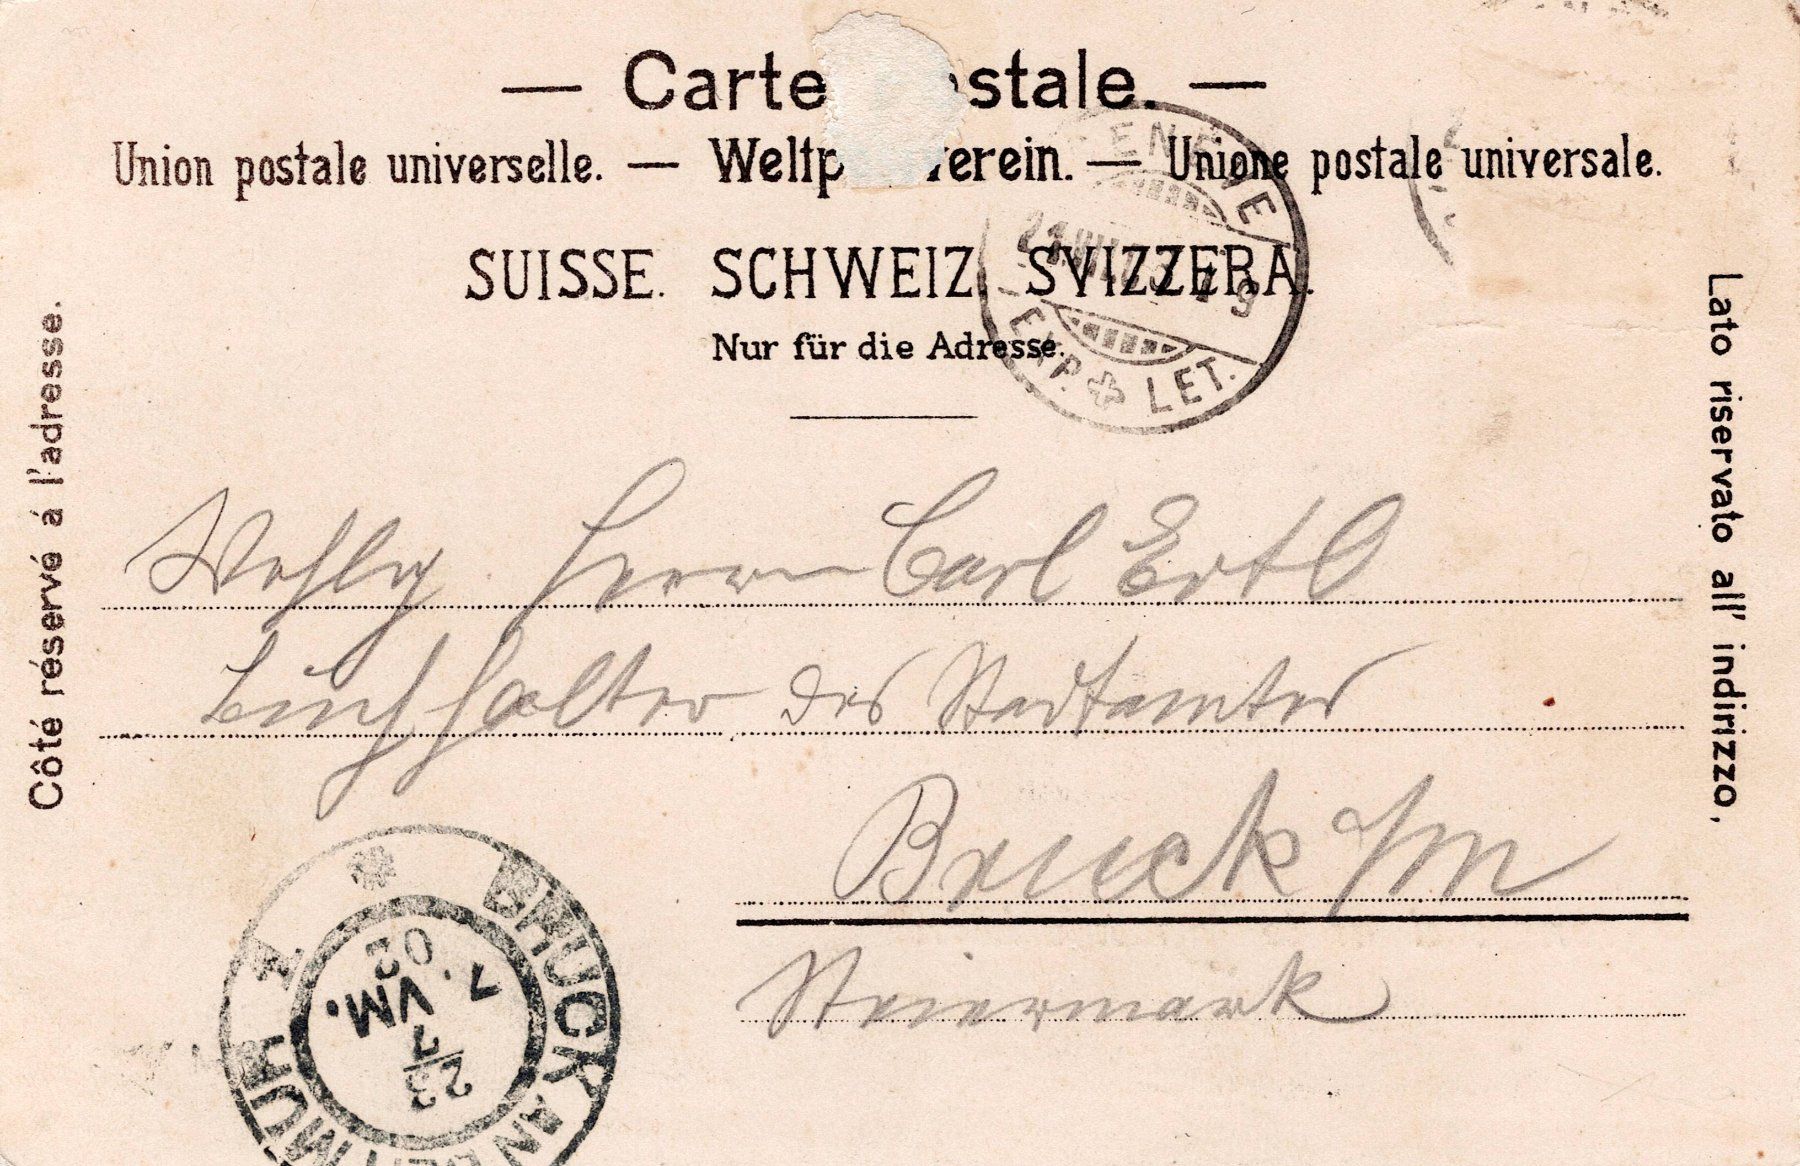 — Carte stale. —
Union postale universelle. — Weltp verein. — Unione postale universale.
SUISSE. SCHWEIZ. SVIZZERA.
Nur für die Adresse.
Côté réservé á l'adresse.
Lato riservato all' indirizzo.
EXP. LET.
Herrn Carl Ertl
Buchhalter des Stadtamtes
Bruck a/M
Steiermark
BRUCK AN DER MUR 1
23/7
7. VM.
02